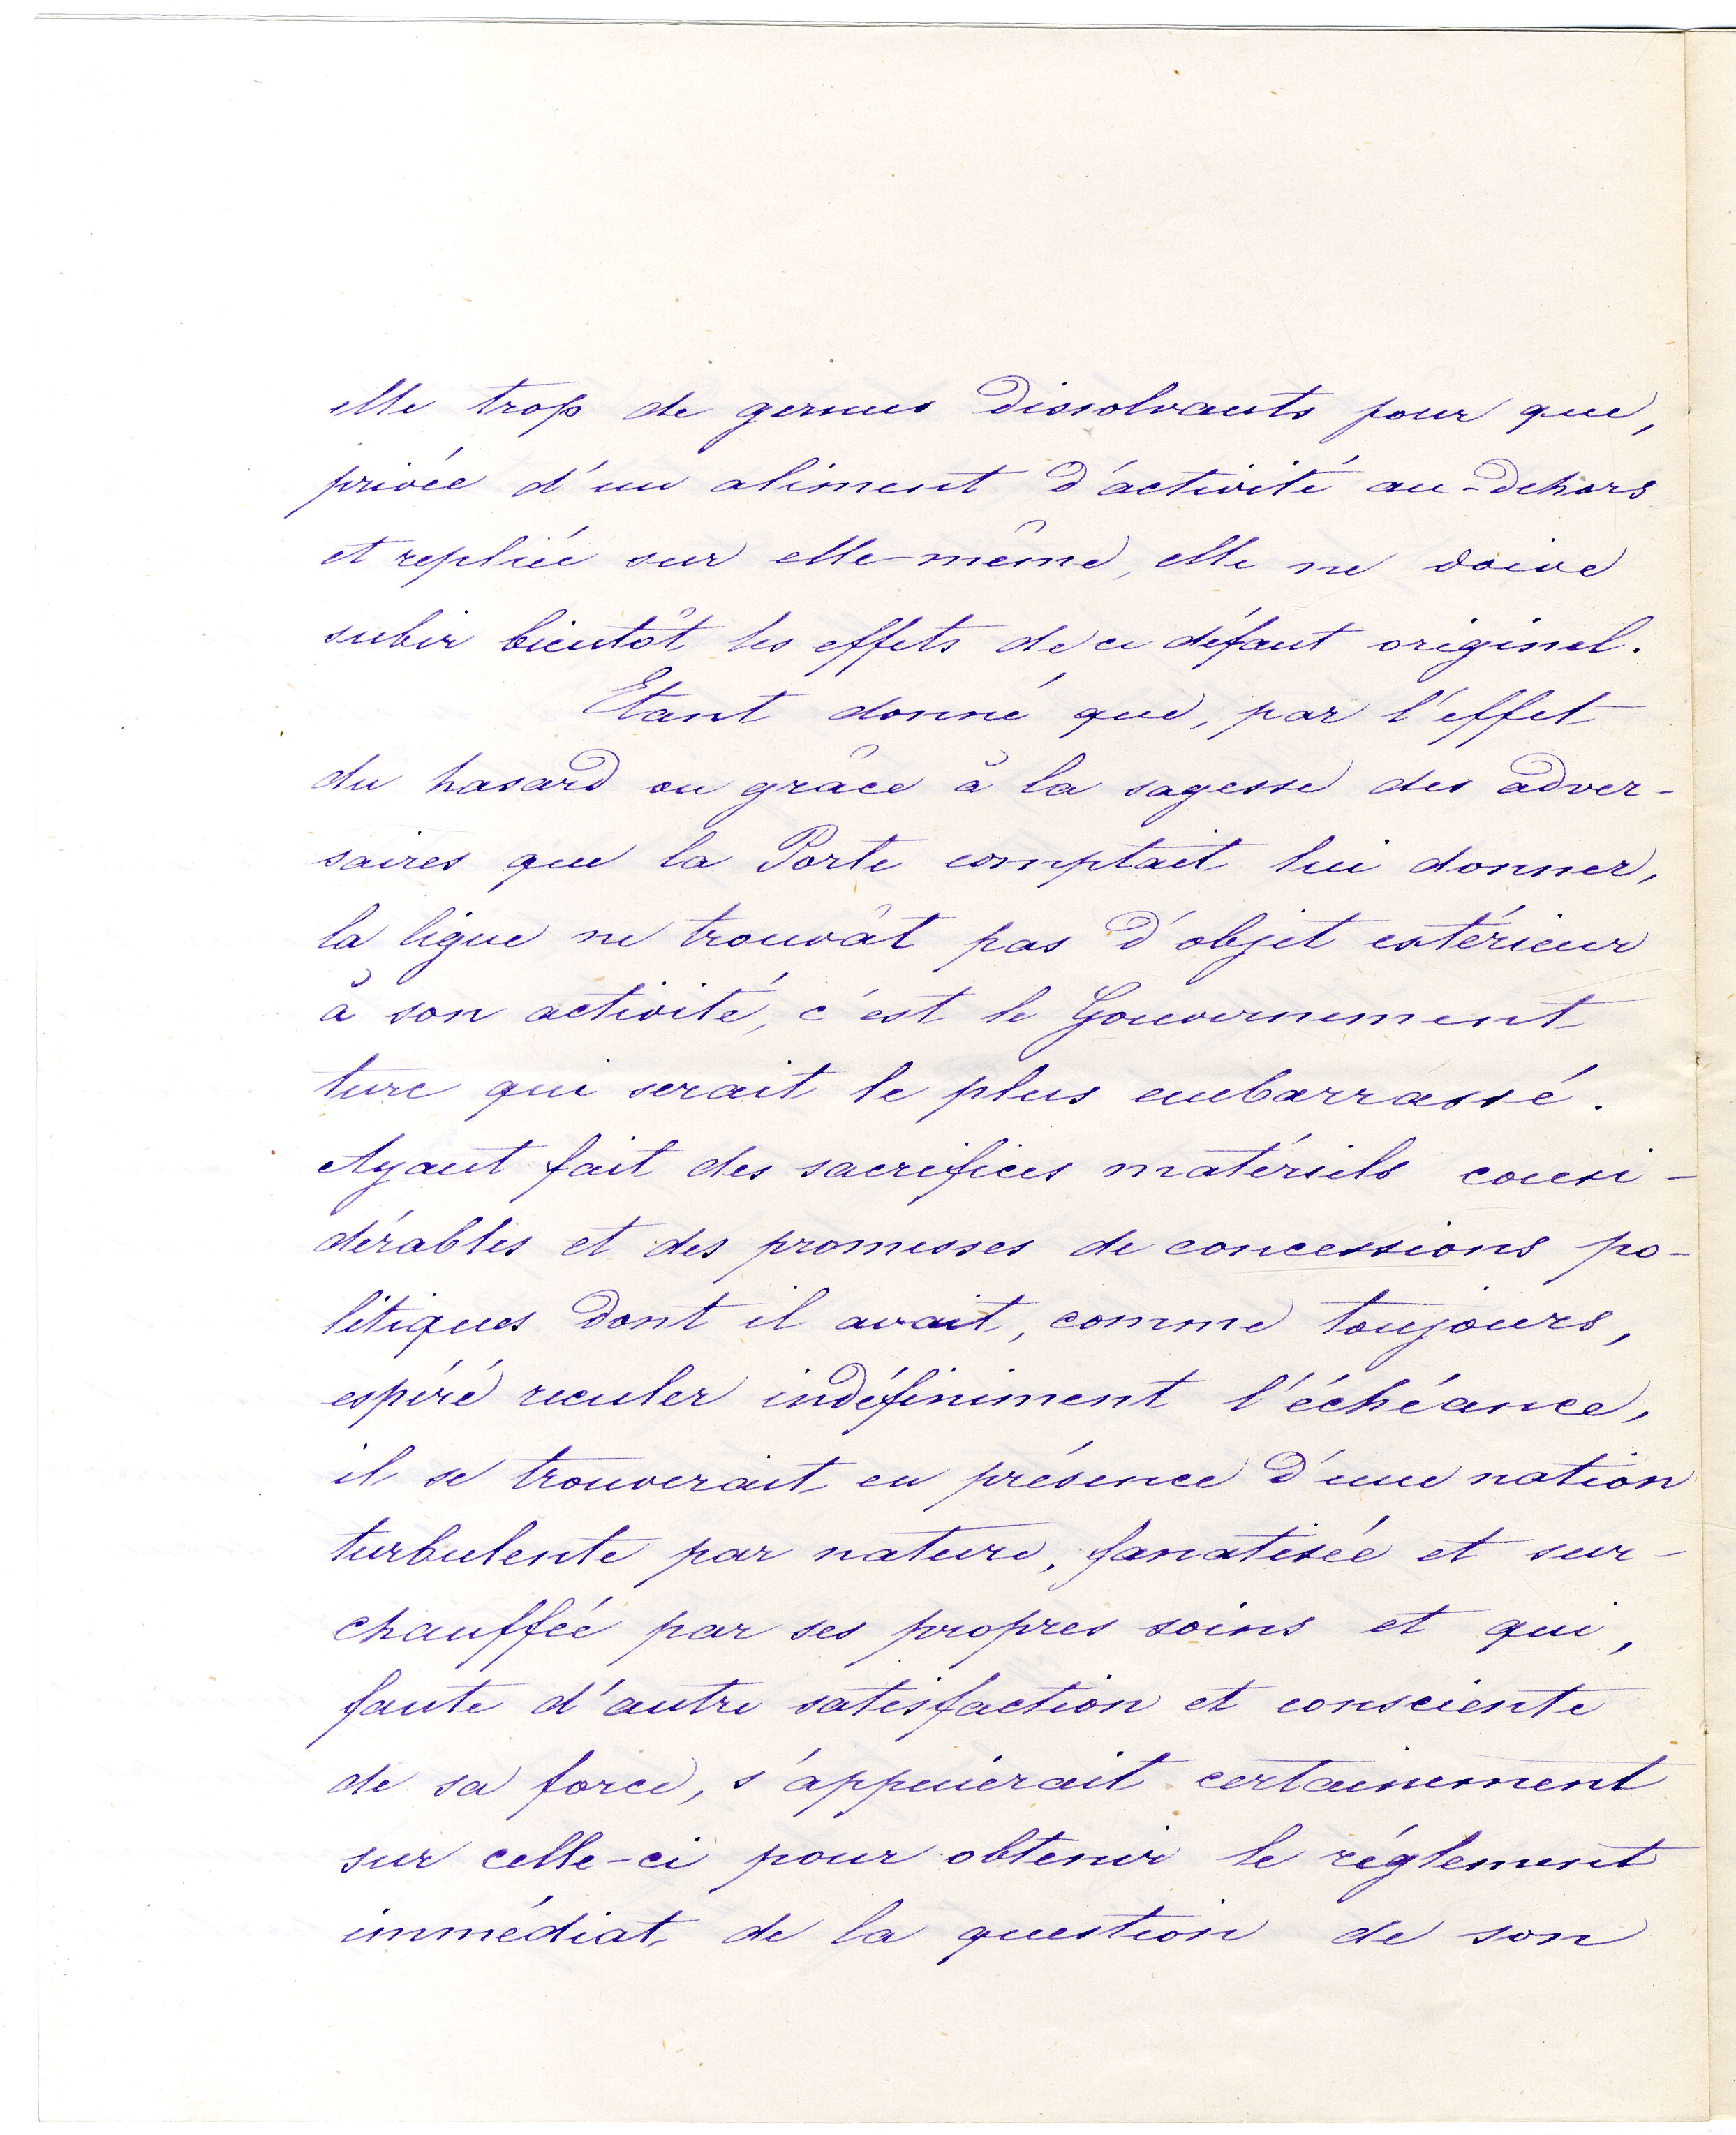 elle trop de germes dissolvants pour que,
privée d'un aliment d'activité au-dehors
et repliée sur elle-même, elle ne doive
subir bientôt les effets de ce défaut originel.
Etant donné que, par l'effet
du hasard ou grâce à la sagesse des adver-
saires que la Porte comptait lui donner,
la ligue ne trouvât pas d'objet extérieur
à son activité, c'est le Gouvernement
turc qui serait le plus embarrassé.
Ayant fait des sacrifices matériels consi-
dérables et des promesses de concessions po-
litiques dont il avait, comme toujours,
espéré reculer indéfiniment l'échéance,
il se trouverait en présence d'une nation
turbulente par nature, fanatisée et sur-
chauffée par ses propres soins et qui,
faute d'autre satisfaction et consciente
de sa force, s'appuierait certainement
sur celle-ci pour obtenir le réglement
immédiat de la question de son